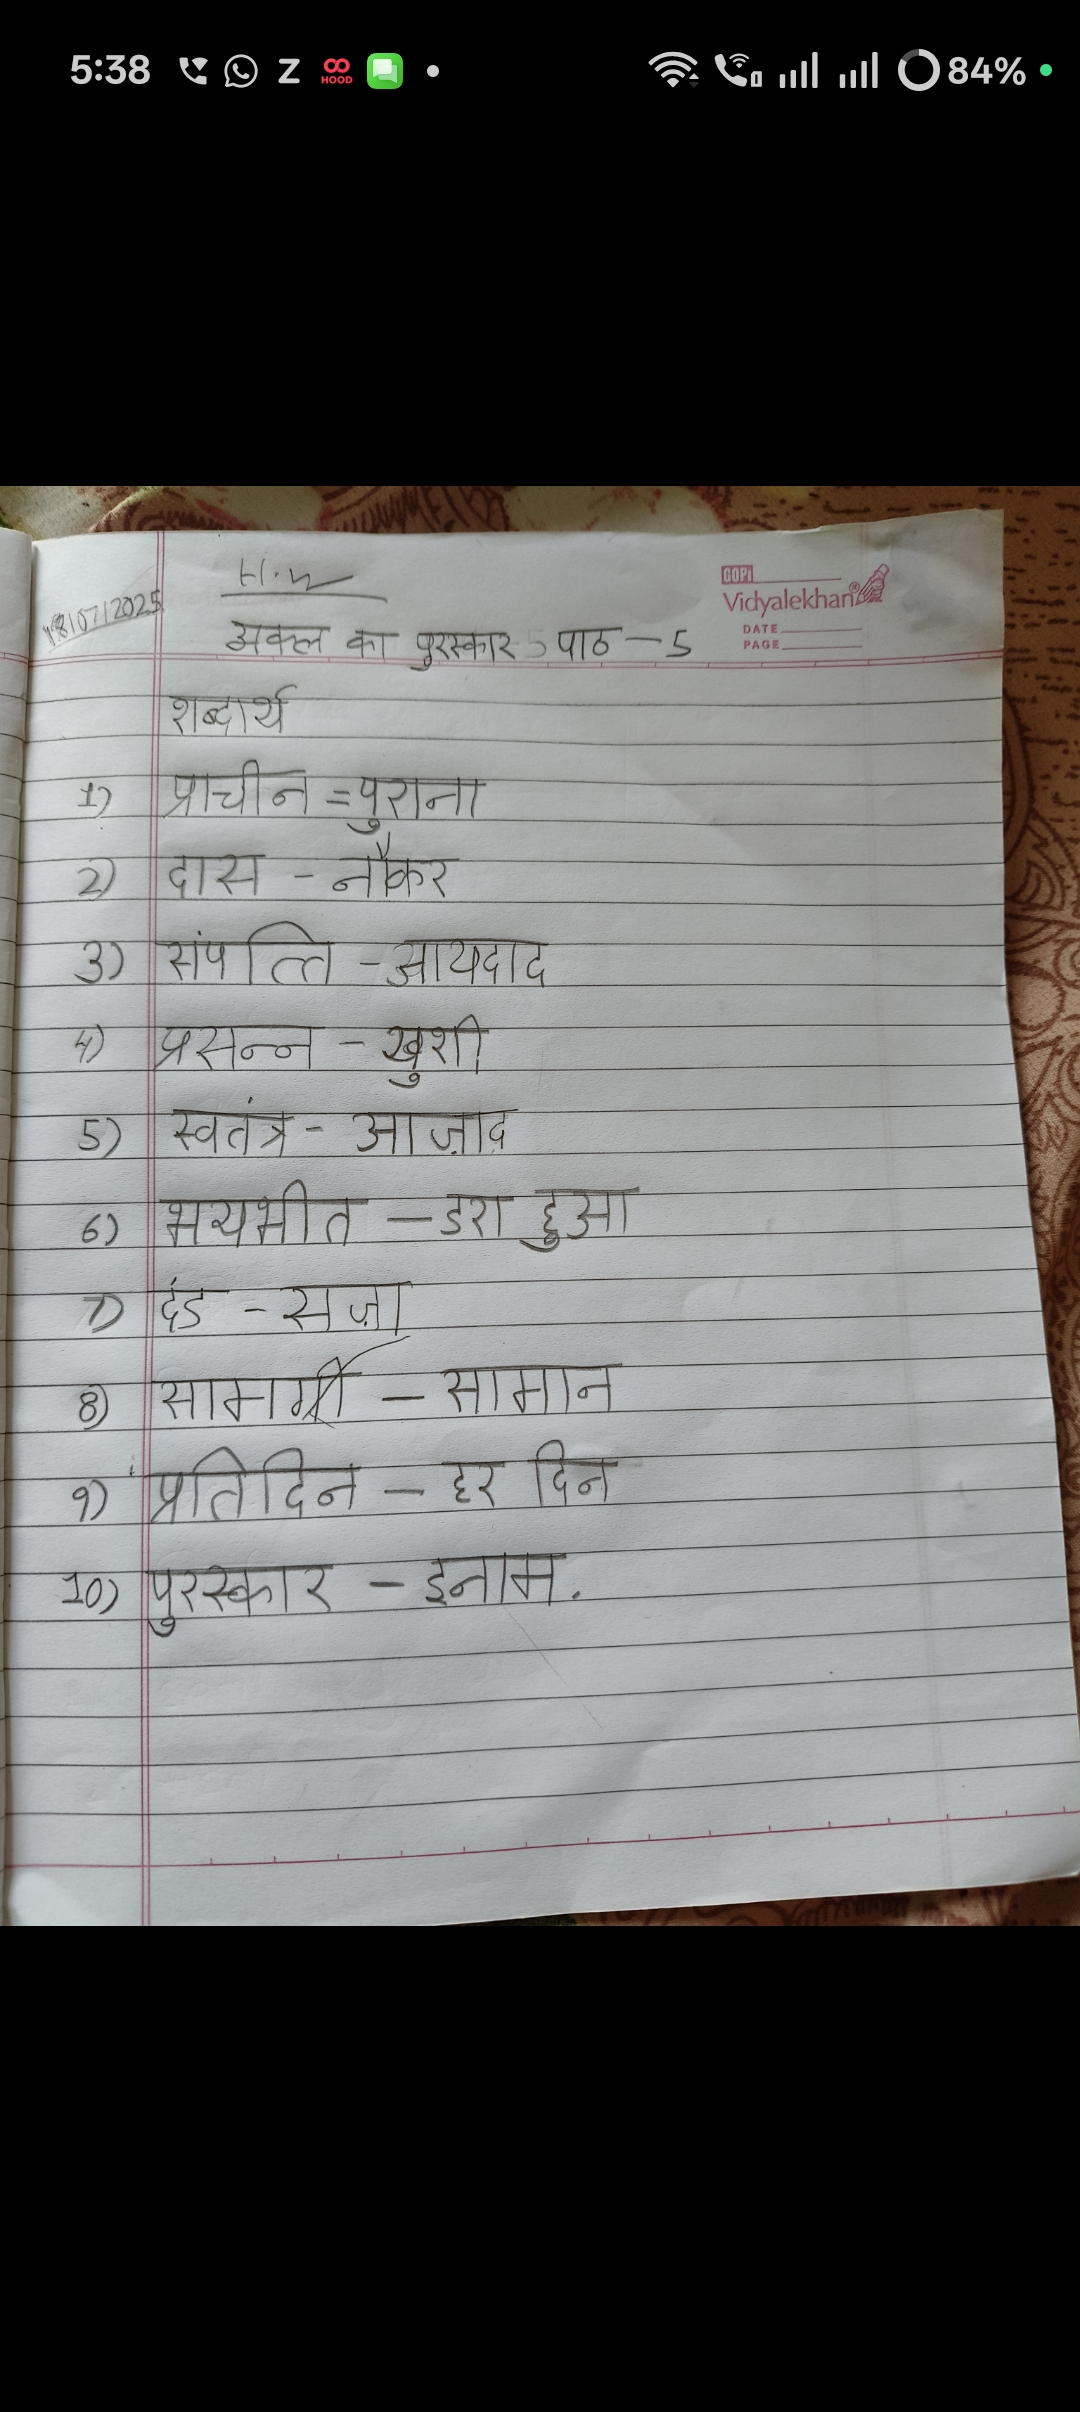 5:38 Z HOOD 84%
H.W
18/07/2025
COPI
Vidyalekhan®
अकल का पुरस्कार 5 पाठ – 5
DATE
PAGE
शब्दार्थ
1) प्राचीन = पुराना
2) दास - नौकर
3) संपत्ति - आयदाद
4) प्रसन्न - खुशी
5) स्वतंत्र - आज़ाद
6) भयभीत – डरा हुआ
7) दंड - सज़ा
8) सामग्री – सामान
9) प्रतिदिन – हर दिन
10) पुरस्कार – इनाम.